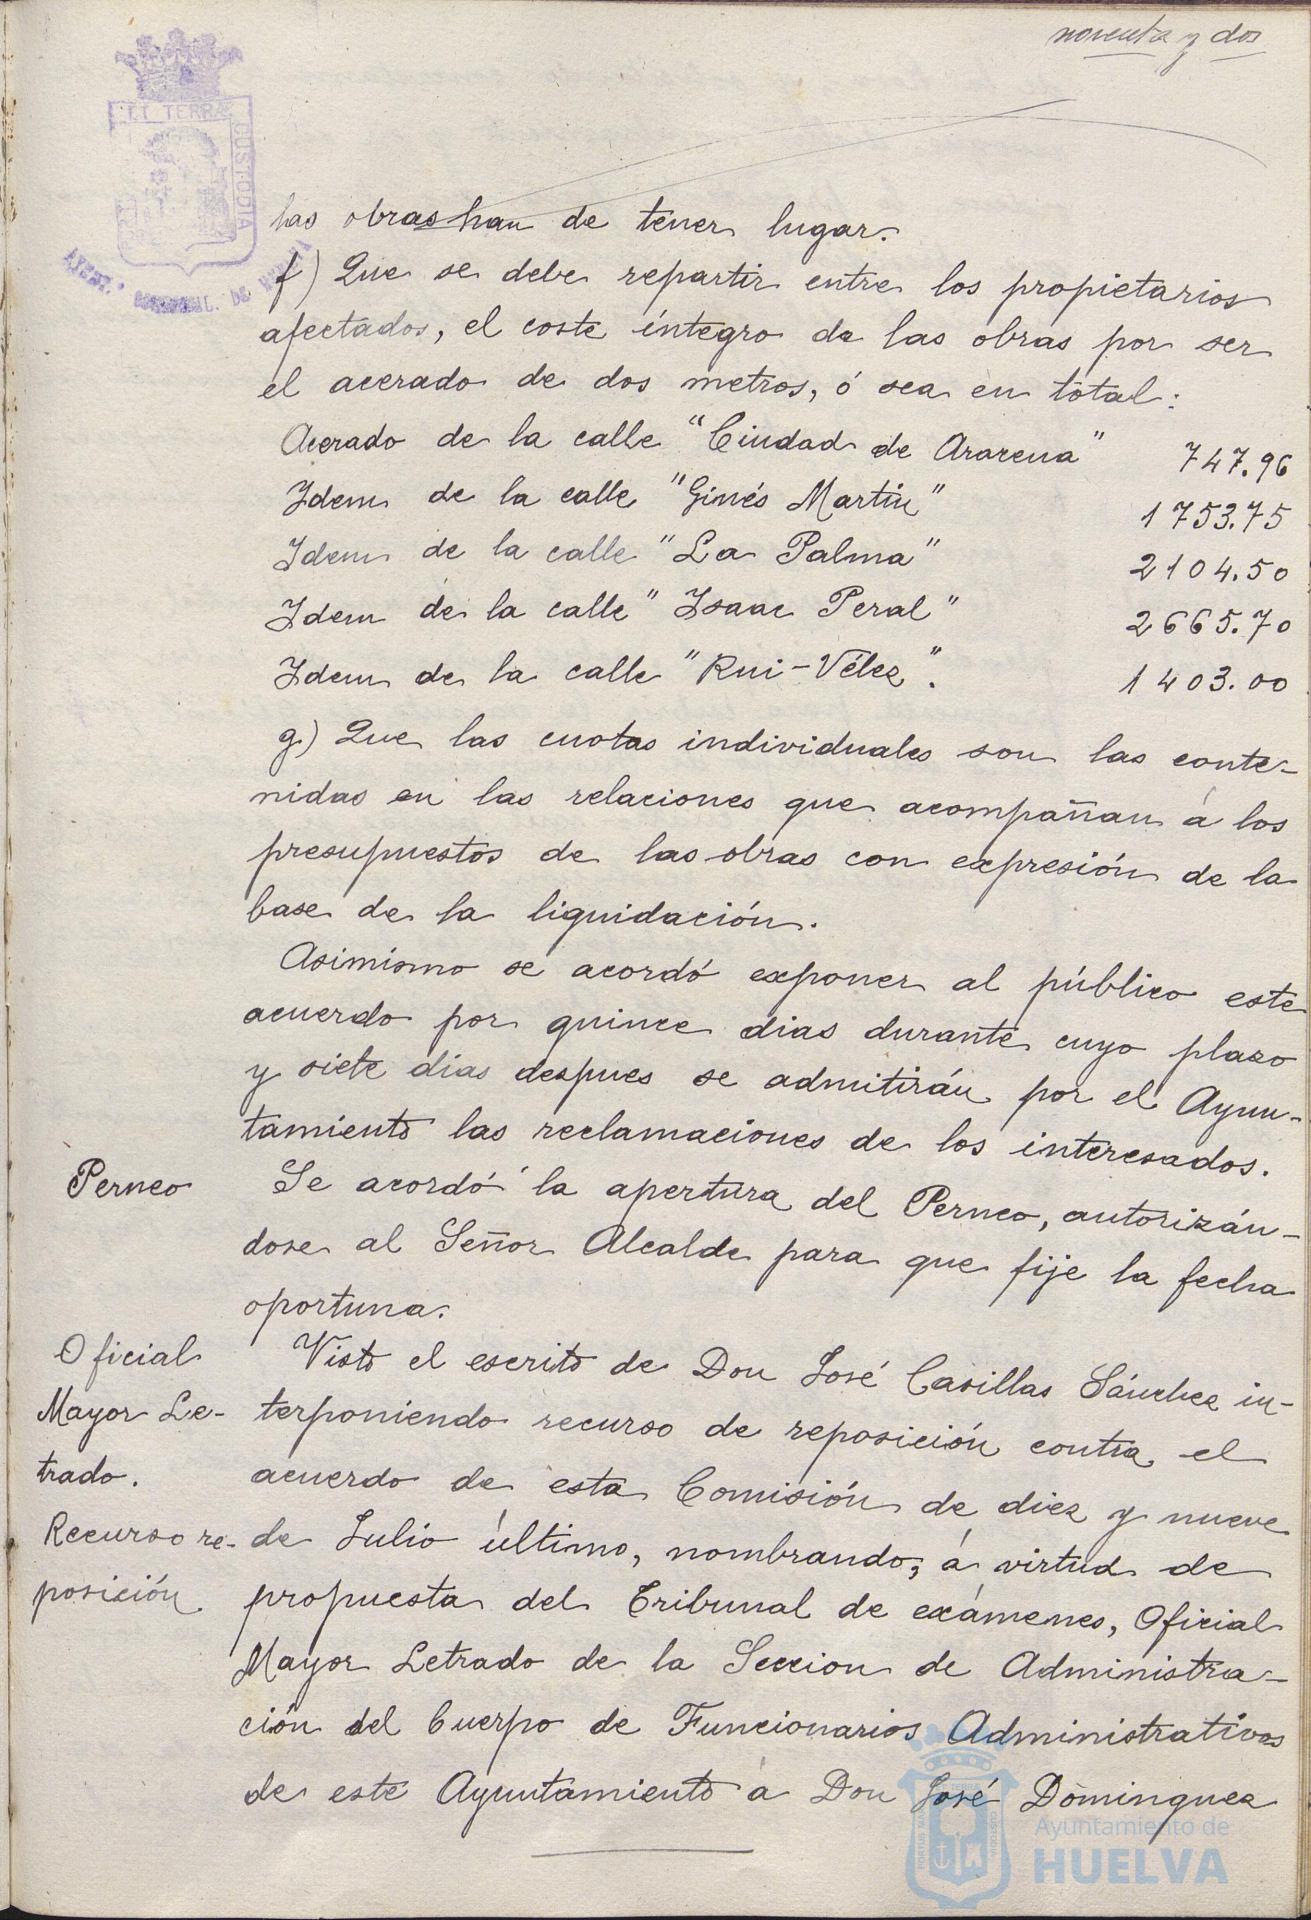 noventa y dos
ET TERRÆ
CUSTODIA
las obras han de tener lugar.
f) Que se debe repartir entre los propietarios
afectados, el coste íntegro de las obras por ser
el acerado de dos metros, ó sea en total:
Acerado de la calle "Ciudad de Aracena" 747.96
Idem de la calle "Ginés Martín" 1753.75
Idem de la calle "La Palma" 2104.50
Idem de la calle "Isaac Peral" 2665.70
Idem de la calle "Rui-Vélez". 1403.00
g) Que las cuotas individuales son las conte-
nidas en las relaciones que acompañan á los
presupuestos de las obras con expresión de la
base de la liquidación.
Asimismo se acordó exponer al público este
acuerdo por quince dias durante cuyo plazo
y siete dias despues se admitirán por el Ayun-
tamiento las reclamaciones de los interesados.
Perneo
Se acordó la apertura del Perneo, autorizán-
dose al Señor Alcalde para que fije la fecha
oportuna.
Oficial
Mayor Le-
trado.
Recurso re-
posición
Visto el escrito de Don José Casillas Sánchez in-
terponiendo recurso de reposición contra el
acuerdo de esta Comisión de diez y nueve
de Julio último, nombrando, á virtud de
propuesta del Tribunal de exámenes, Oficial
Mayor Letrado de la Seccion de Administra-
ción del Cuerpo de Funcionarios Administrativos
de este Ayuntamiento á Don José Dominguez
Ayuntamiento de
HUELVA